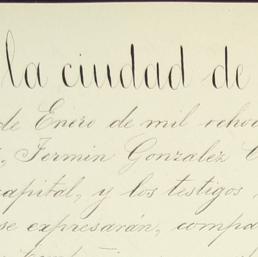 la ciudad de
de Enero de mil ocho
Fermin Gonzalez
capital, y los testigos
se expresarán, compa